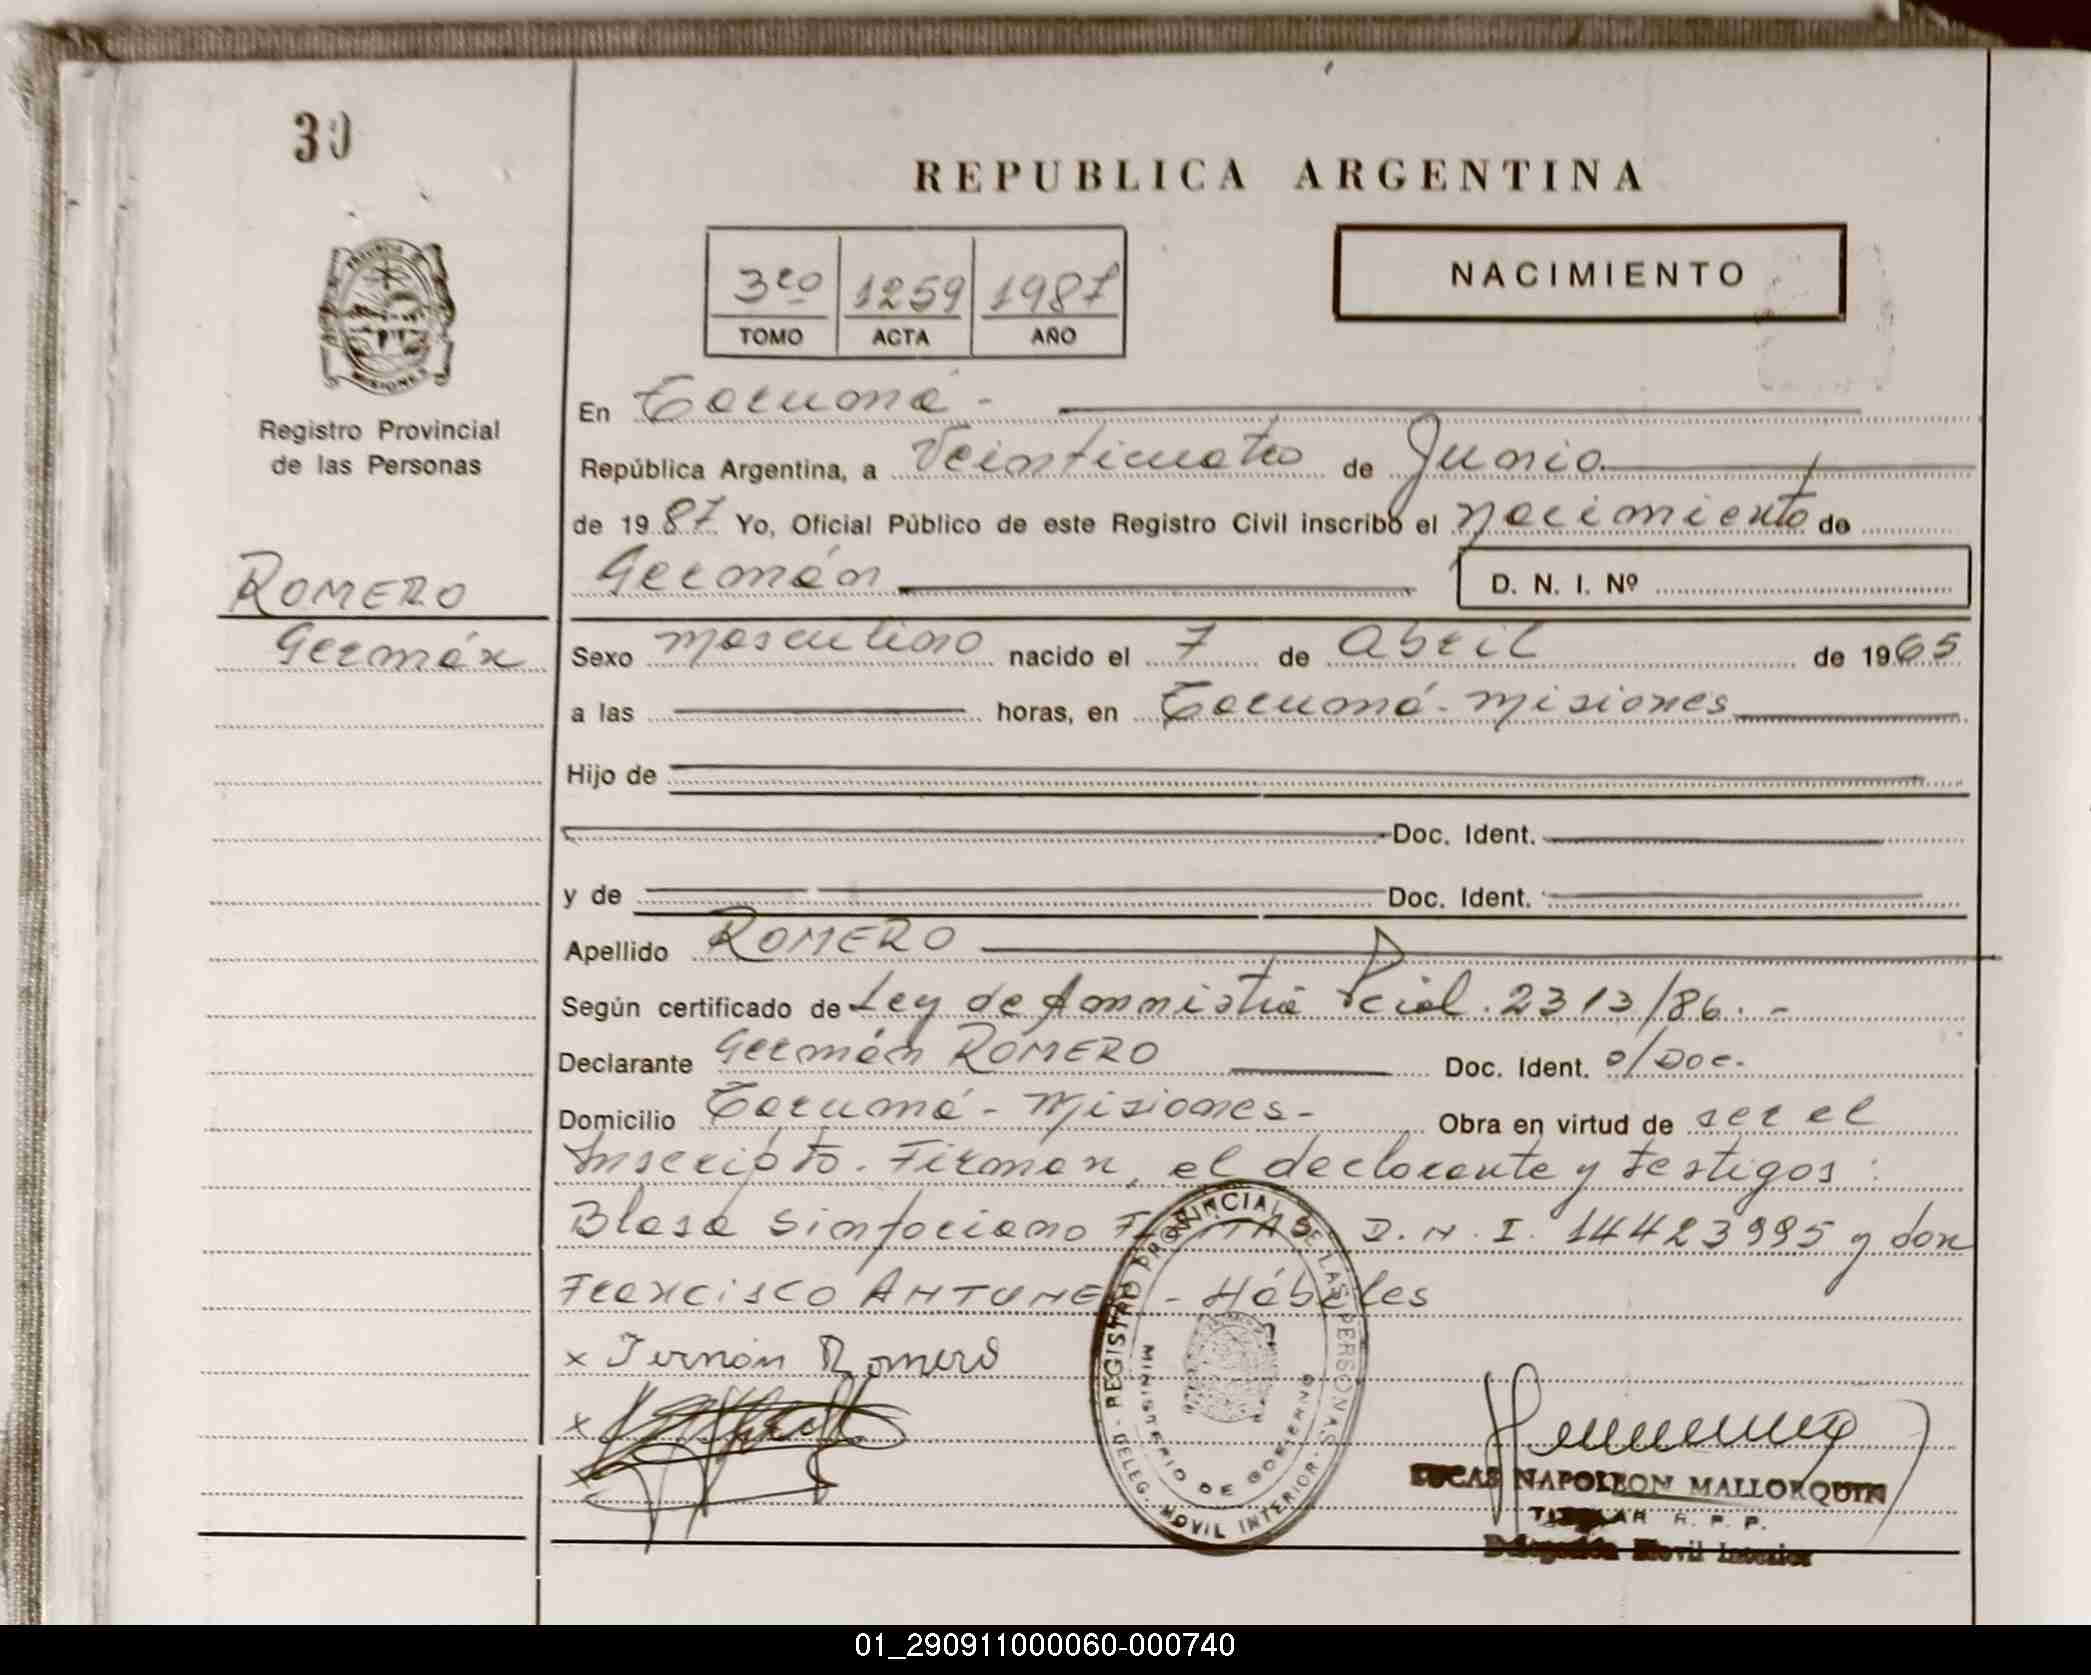 30
REPUBLICA ARGENTINA
NACIMIENTO
3ro 1259 1987
TOMO ACTA AÑO
PROVINCIA MISIONES
Registro Provincial
de las Personas
En Tarumá -
República Argentina, a Veinticuatro de Junio
de 1987 Yo, Oficial Público de este Registro Civil inscribo el nacimiento de
Germán D. N. I. Nº
ROMERO
Germán
Sexo masculino nacido el 7 de Abril de 1965
a las horas, en Tarumá - Misiones
Hijo de
Doc. Ident.
y de Doc. Ident.
Apellido ROMERO
Según certificado de Ley de Amnistia Pcial. 2313/86. -
Declarante Germán ROMERO Doc. Ident. o/Doc.
Domicilio Tarumá - Misiones - Obra en virtud de ser el
Inscripto. Firman, el declarante y testigos:
Blasa Sinforiano D.N.I. 14423995 y don
Francisco ANTUNE - Hábiles
x Jermán Romero
x
x
REGISTRO PROVINCIAL DE LAS PERSONAS - DELEG. MOVIL INTERIOR -
MINISTERIO DE GOBIERNO
LUCAS NAPOLEON MALLORQUIN
TITULAR R. P. P.
Delegación Movil Interior
01_290911000060-000740